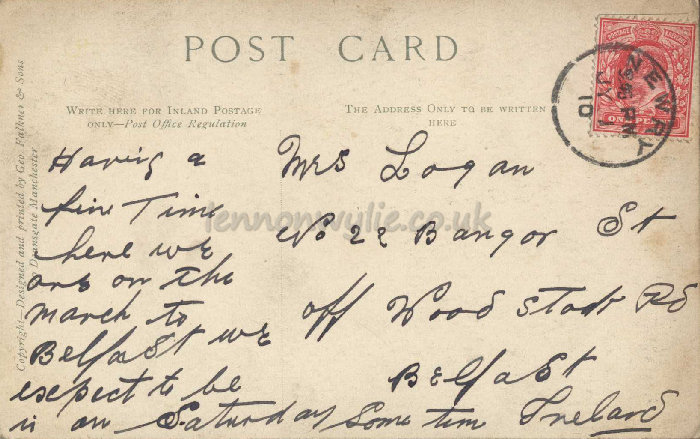 POST CARD
WRITE HERE FOR INLAND POSTAGE
ONLY—Post Office Regulation
THE ADDRESS ONLY TO BE WRITTEN
HERE
Copyright—Designed and printed by Geo. Falkner & Sons
Deansgate Manchester
NEWRY
PM
10
ONE
Having a
fine Time
here we
are on the
march to
Belfast we
expect to be
in on Saturday Some time
Mrs Logan
No 22 Bangor St
off Wood stock Rd
Belfast
Ireland
lennonwylie.co.uk